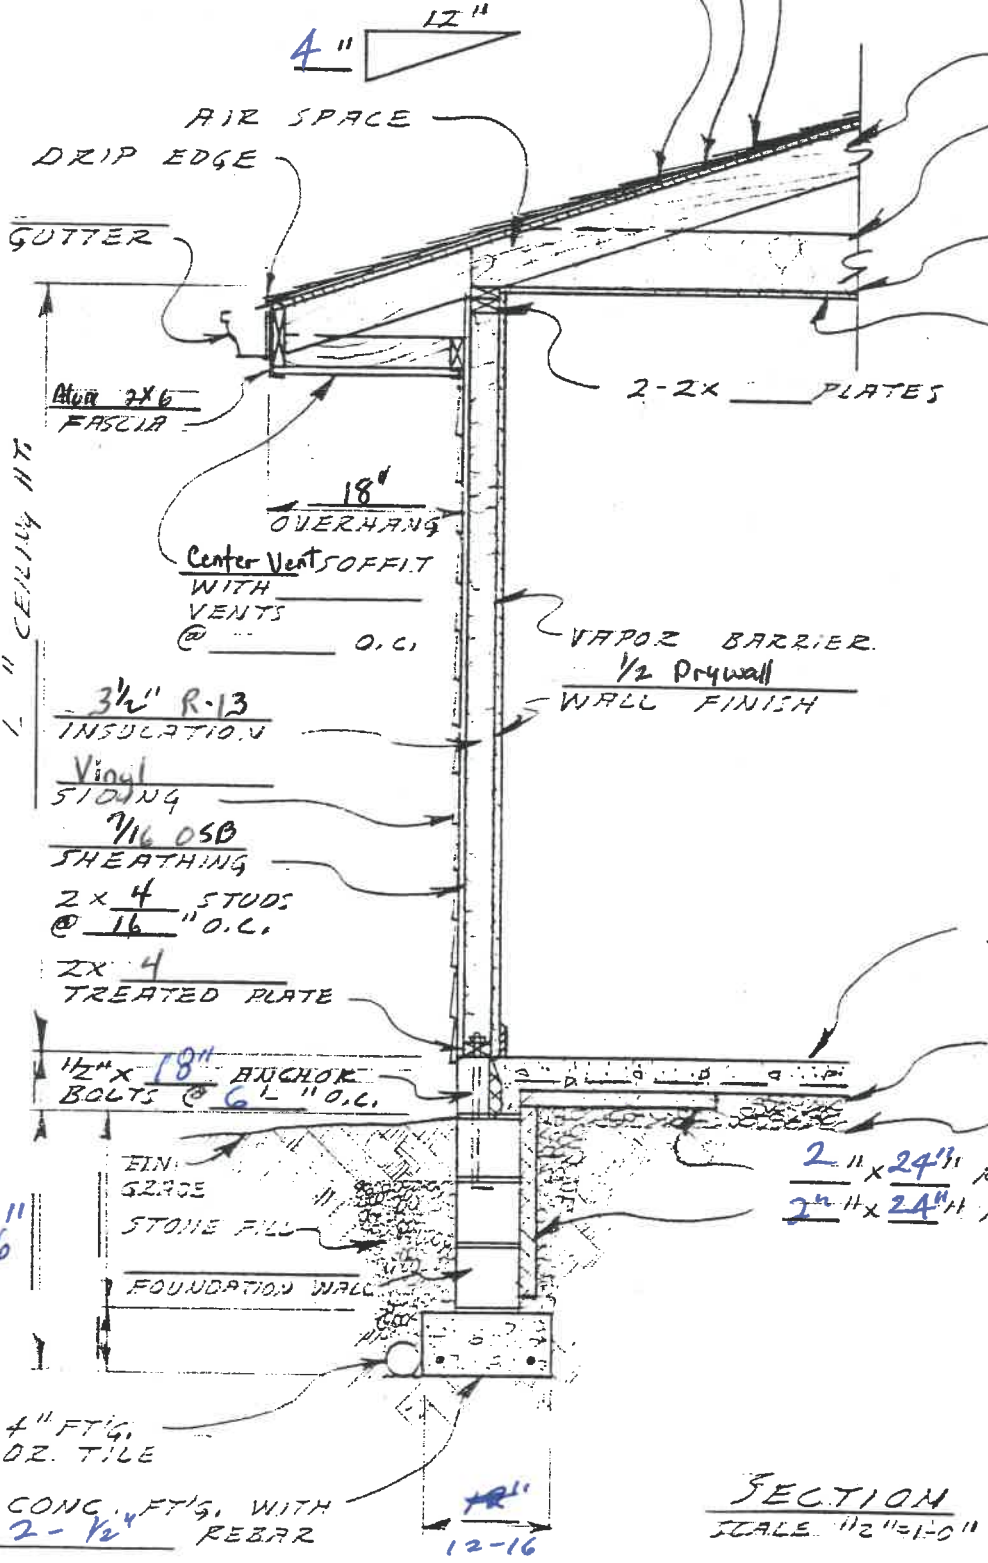 12"
4"
AIR SPACE
DRIP EDGE
GUTTER
Alum 2x6
FASCIA
2-2x ____ PLATES
18"
OVERHANG
Center Vent SOFFIT
WITH ____
VENTS
@ ____ O.C.
" CEILING HT.
VAPOR BARRIER
1/2 Drywall
WALL FINISH
3 1/2" R-13
INSULATION
Vinyl
SIDING
7/16 OSB
SHEATHING
2 x 4 STUDS
@ 16 " O.C.
2x 4
TREATED PLATE
1/2" x 18" ANCHOR
BOLTS @ 6'- " O.C.
FIN.
GRADE
STONE FILL
FOUNDATION WALL
6"
2 " x 24""
2" " x 24" "
4" FT'G.
DR. TILE
CONC. FT'G. WITH
2 - 1/2" REBAR
12"
12-16
SECTION
SCALE 1/2"=1'-0"